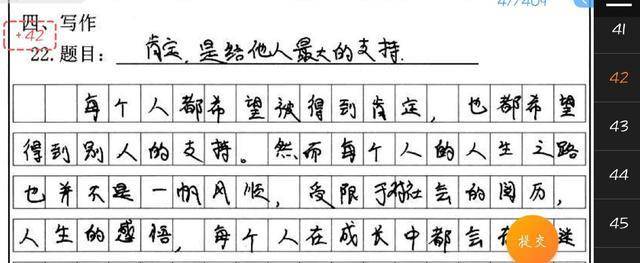 47/409
四、写作
+42
22.题目：肯定，是给他人最大的支持.
每个人都希望被得到肯定，也都希望
得到别人的支持。然而每个人的人生之路
也并不是一帆风顺，受限于社会的阅历，
人生的感悟，每个人在成长中都会 迷
提交
41
42
43
44
45